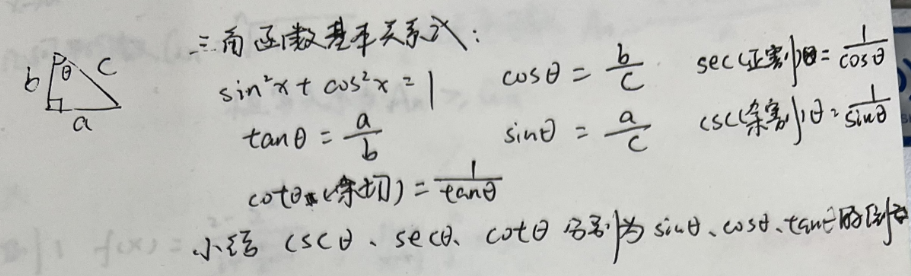 三角函数基本关系式:
b θ c
a
sin²x + cos²x = 1 cosθ = b/c sec(正割)θ = 1/cosθ
tanθ = a/b sinθ = a/c csc(余割)θ = 1/sinθ
cotθ (余切) = 1/tanθ
小结 cscθ、secθ、cotθ 分别为 sinθ、cosθ、tanθ的倒数
f(x) =